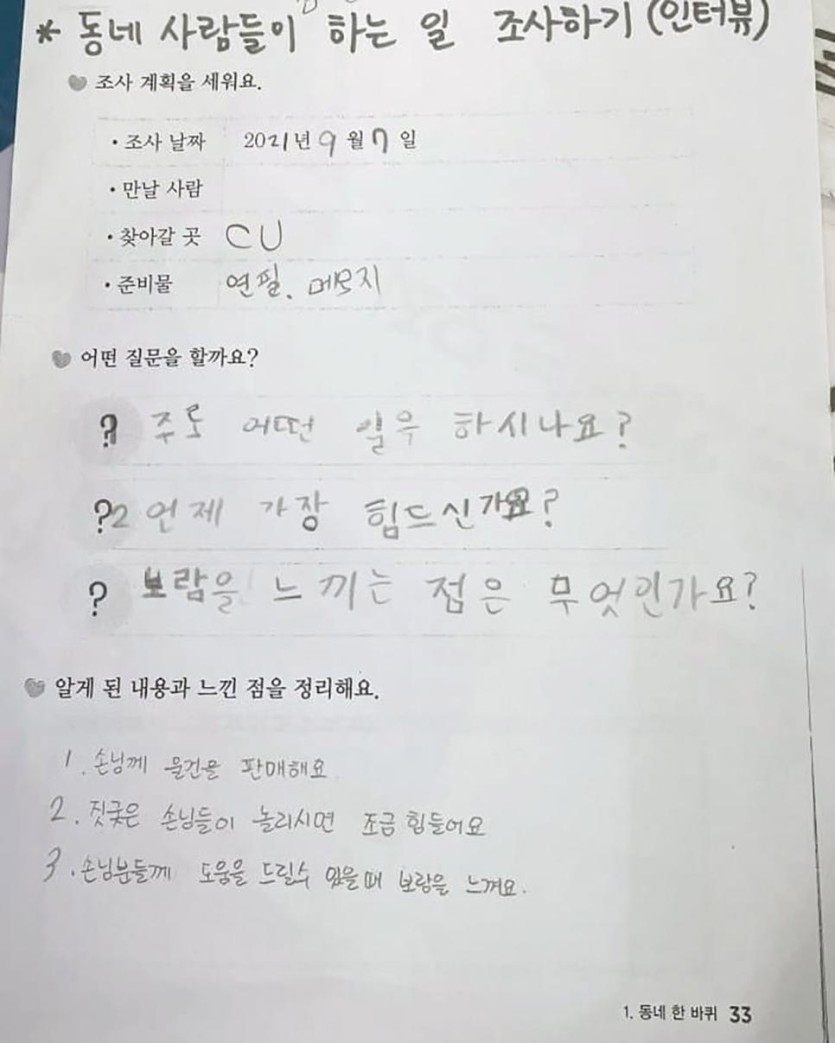 * 동네 사람들이 하는 일 조사하기 (인터뷰)
조사 계획을 세워요.
• 조사 날짜 2021년 9월 7일
• 만날 사람
• 찾아갈 곳 CU
• 준비물 연필. 메모지
어떤 질문을 할까요?
? 주로 어떤 일우 하시나요?
?2 언제 가장 힘드신가요?
? 보람을 느끼는 점은 무엇인가요?
알게 된 내용과 느낀 점을 정리해요.
1. 손님께 물건을 판매해요
2. 짓궂은 손님들이 놀리시면 조금 힘들어요
3. 손님분들께 도움을 드릴수 있을때 보람을 느껴요.
1. 동네 한 바퀴 33